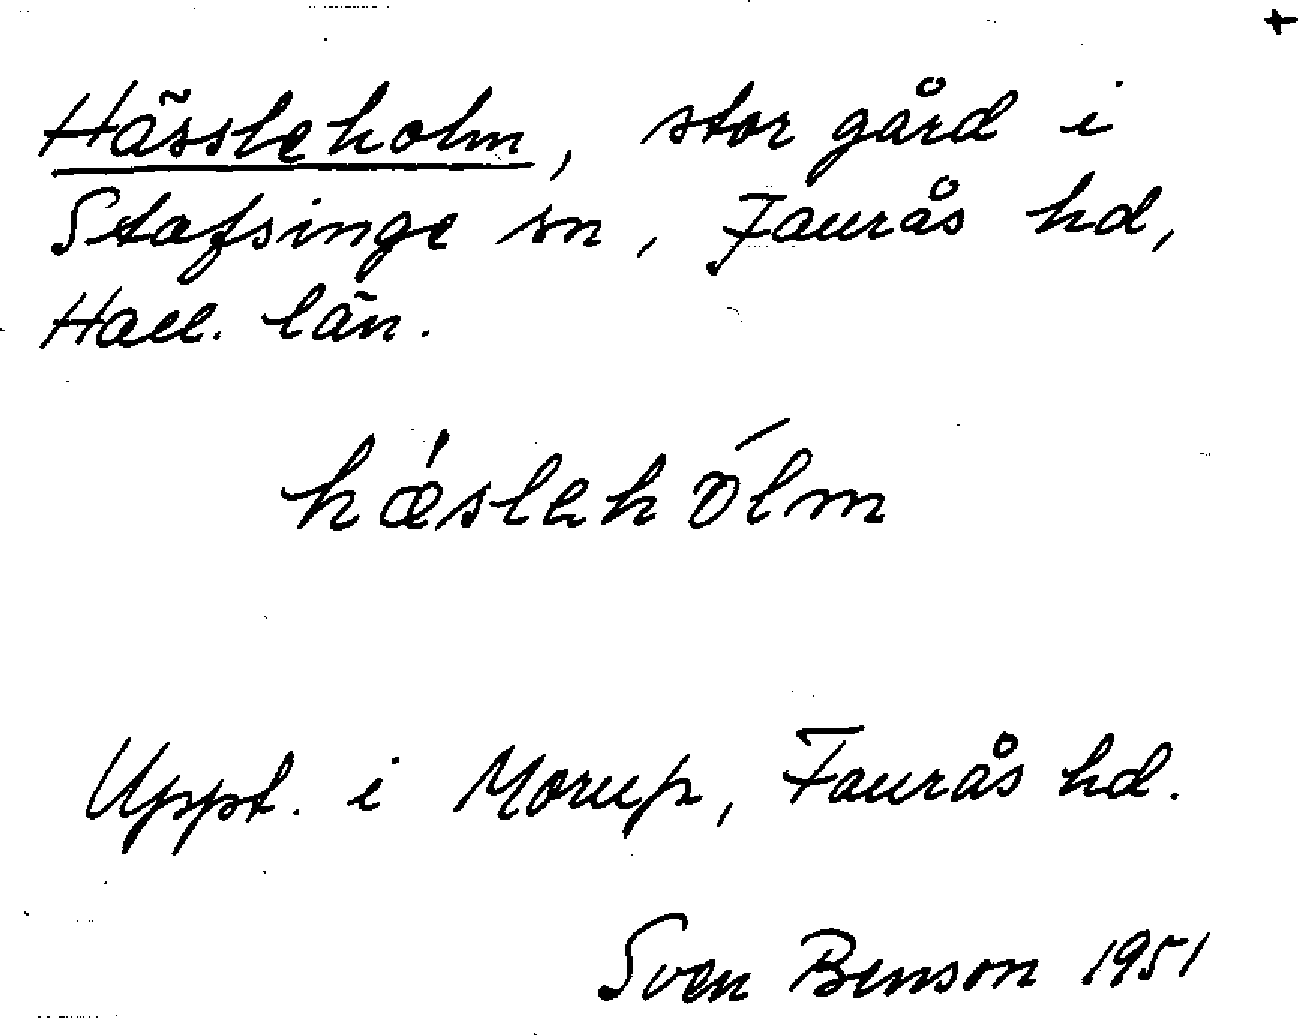 +
Hässleholm, stor gård i
Stafsinge sn, Faurås hd,
Hall. län.
hǽsləhólm
Uppt. i Morup, Faurås hd.
Sven Benson 1951